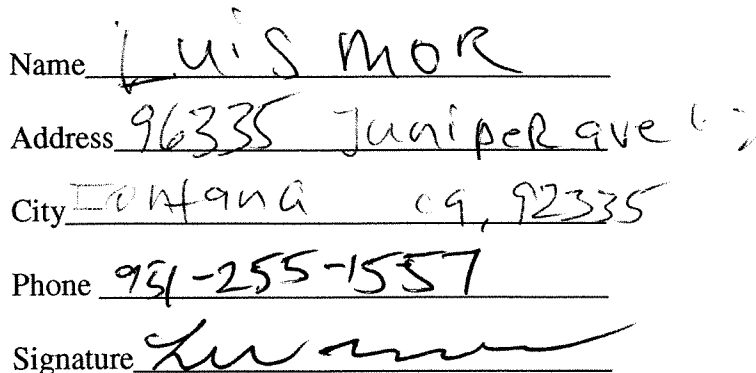 Name Luis MOR
Address 96335 Juniper ave
City Fontana ca, 92335
Phone 951-255-1557
Signature